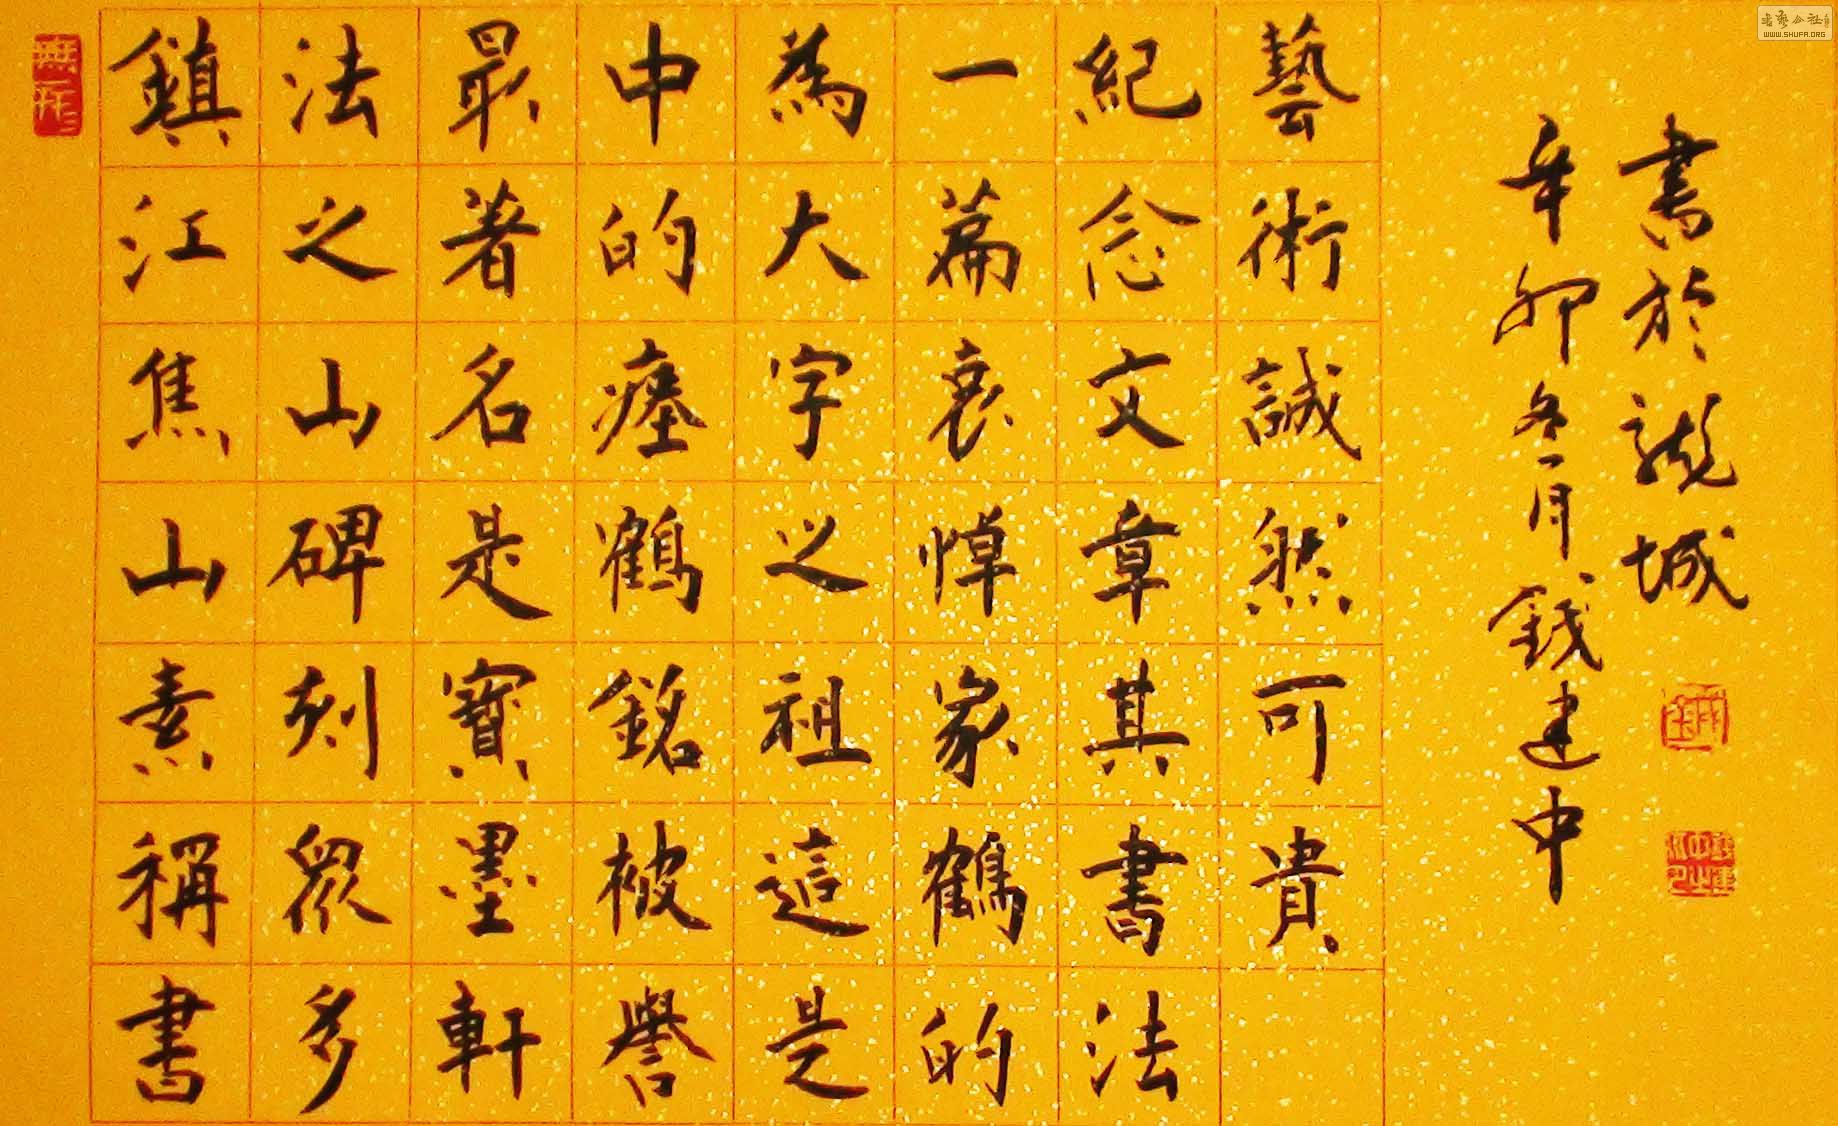 鎮江焦山素稱書
法之山碑刻眾多
最著名是寶墨軒
中的瘞鶴銘被譽
為大字之祖這是
一篇哀悼家鶴的
紀念文章其書法
藝術誠然可貴
辛卯冬月錢建中
書於龍城
WWW.SHUFA.ORG